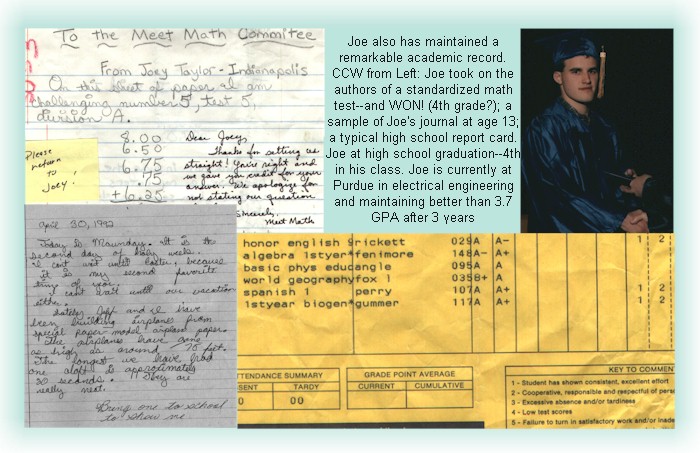 To the Meet Math Commitee
From Joey Taylor - Indianapolis
On this sheet of paper I am
challenging number 5, test 5,
division A.
8.00
6.50
6.75
.75
+6.25
Dear Joey,
Thanks for setting us
straight! You're right and
we gave you credit for your
answer. We apologize for
not stating our question
Sincerely,
Meet Math
Please
return
to
Joey!
Joe also has maintained a
remarkable academic record.
CCW from Left: Joe took on the
authors of a standardized math
test--and WON! (4th grade?); a
sample of Joe's journal at age 13;
a typical high school report card.
Joe at high school graduation--4th
in his class. Joe is currently at
Purdue in electrical engineering
and maintaining better than 3.7
GPA after 3 years
April 30, 1992
Today is Maunday. It is the
second day of holy week.
I cant wait until Easter, because
it is my second favorite
time of year.
I cant wait until our vacation
either.
Lately Jeff and I have
been building airplanes from
special paper-model airplane paper.
The airplanes have gone
as high as around 75 feet.
The longest we have had
one aloft is approximately
30 seconds. They are
really neat.
Bring one to school
to show me
honor english 9 rickett 029A A-
algebra 1styear*fenimore 148A- A+
basic phys educangle 095A A
world geographyfox 1 035B+ A
spanish 1 perry 107A A+ 1 2
1styear biogen*gummer 117A A+ 1 2
TTENDANCE SUMMARY
SENT TARDY
0 00
GRADE POINT AVERAGE
CURRENT CUMULATIVE
KEY TO COMMEN
1 - Student has shown consistent, excellent effort
2 - Cooperative, responsible and respectful of pers
3 - Excessive absence and/or tardiness
4 - Low test scores
5 - Failure to turn in satisfactory work and/or inade